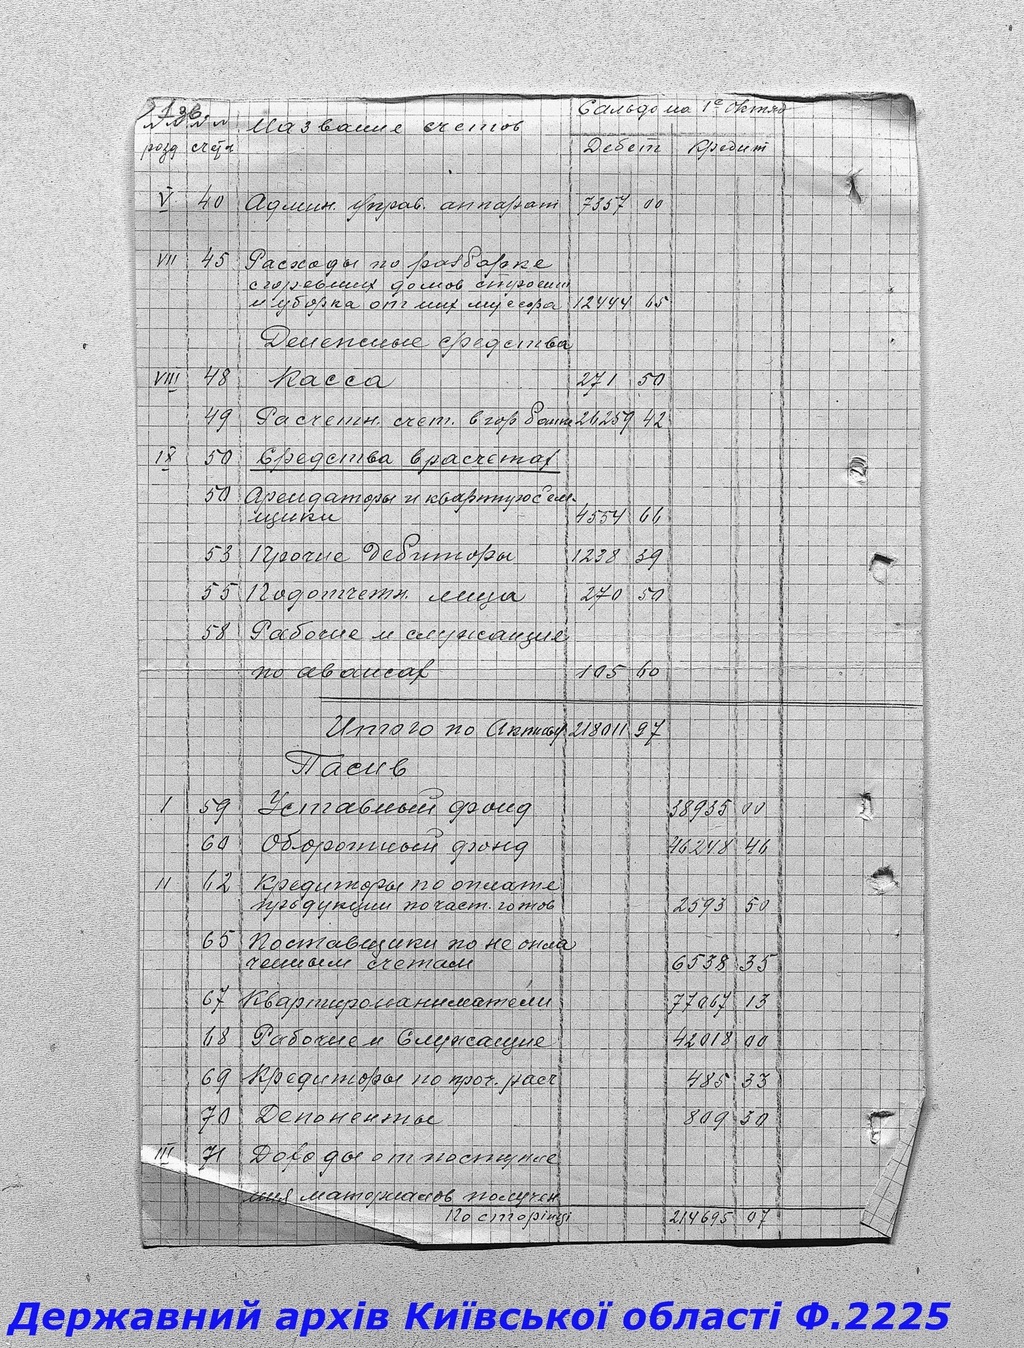 Название счетов Сальдо на 1е октяб
розд счета Дебет Кредит
V 40 Админ. управ. аппарат 7357 00
VII 45 Расходы по разборке
сгоревших домов строени
и уборка от них мусора 12444 65
Денежные средства
VIII 48 Касса 271 50
49 Расчетн. счет. в гор банке 26259 42
IX 50 Средства в расчетах
50 Арендаторы и квартиросъем-
щики 4554 66
53 Прочие Дебиторы 1238 39
55 Подотчетн. лица 270 50
58 Рабочие и служащие
по авансах 105 60
Итого по Активу 218011 97
Пасив
I 59 Уставный фонд 38935 00
60 Оборотный фонд 46248 46
II 62 Кредиторы по оплате
продукции почаст. готов 2593 50
65 Поставщики по не опла
ченным счетам 6538 35
67 Квартиронаниматели 77067 13
68 Рабочие и Служащие 42018 00
69 Кредиторы по проч. расч 485 33
70 Депоненты 809 30
III 71 Доходы от поступле
ния материалов получен
По сторінці 214695 07
Державний архів Київської області Ф.2225